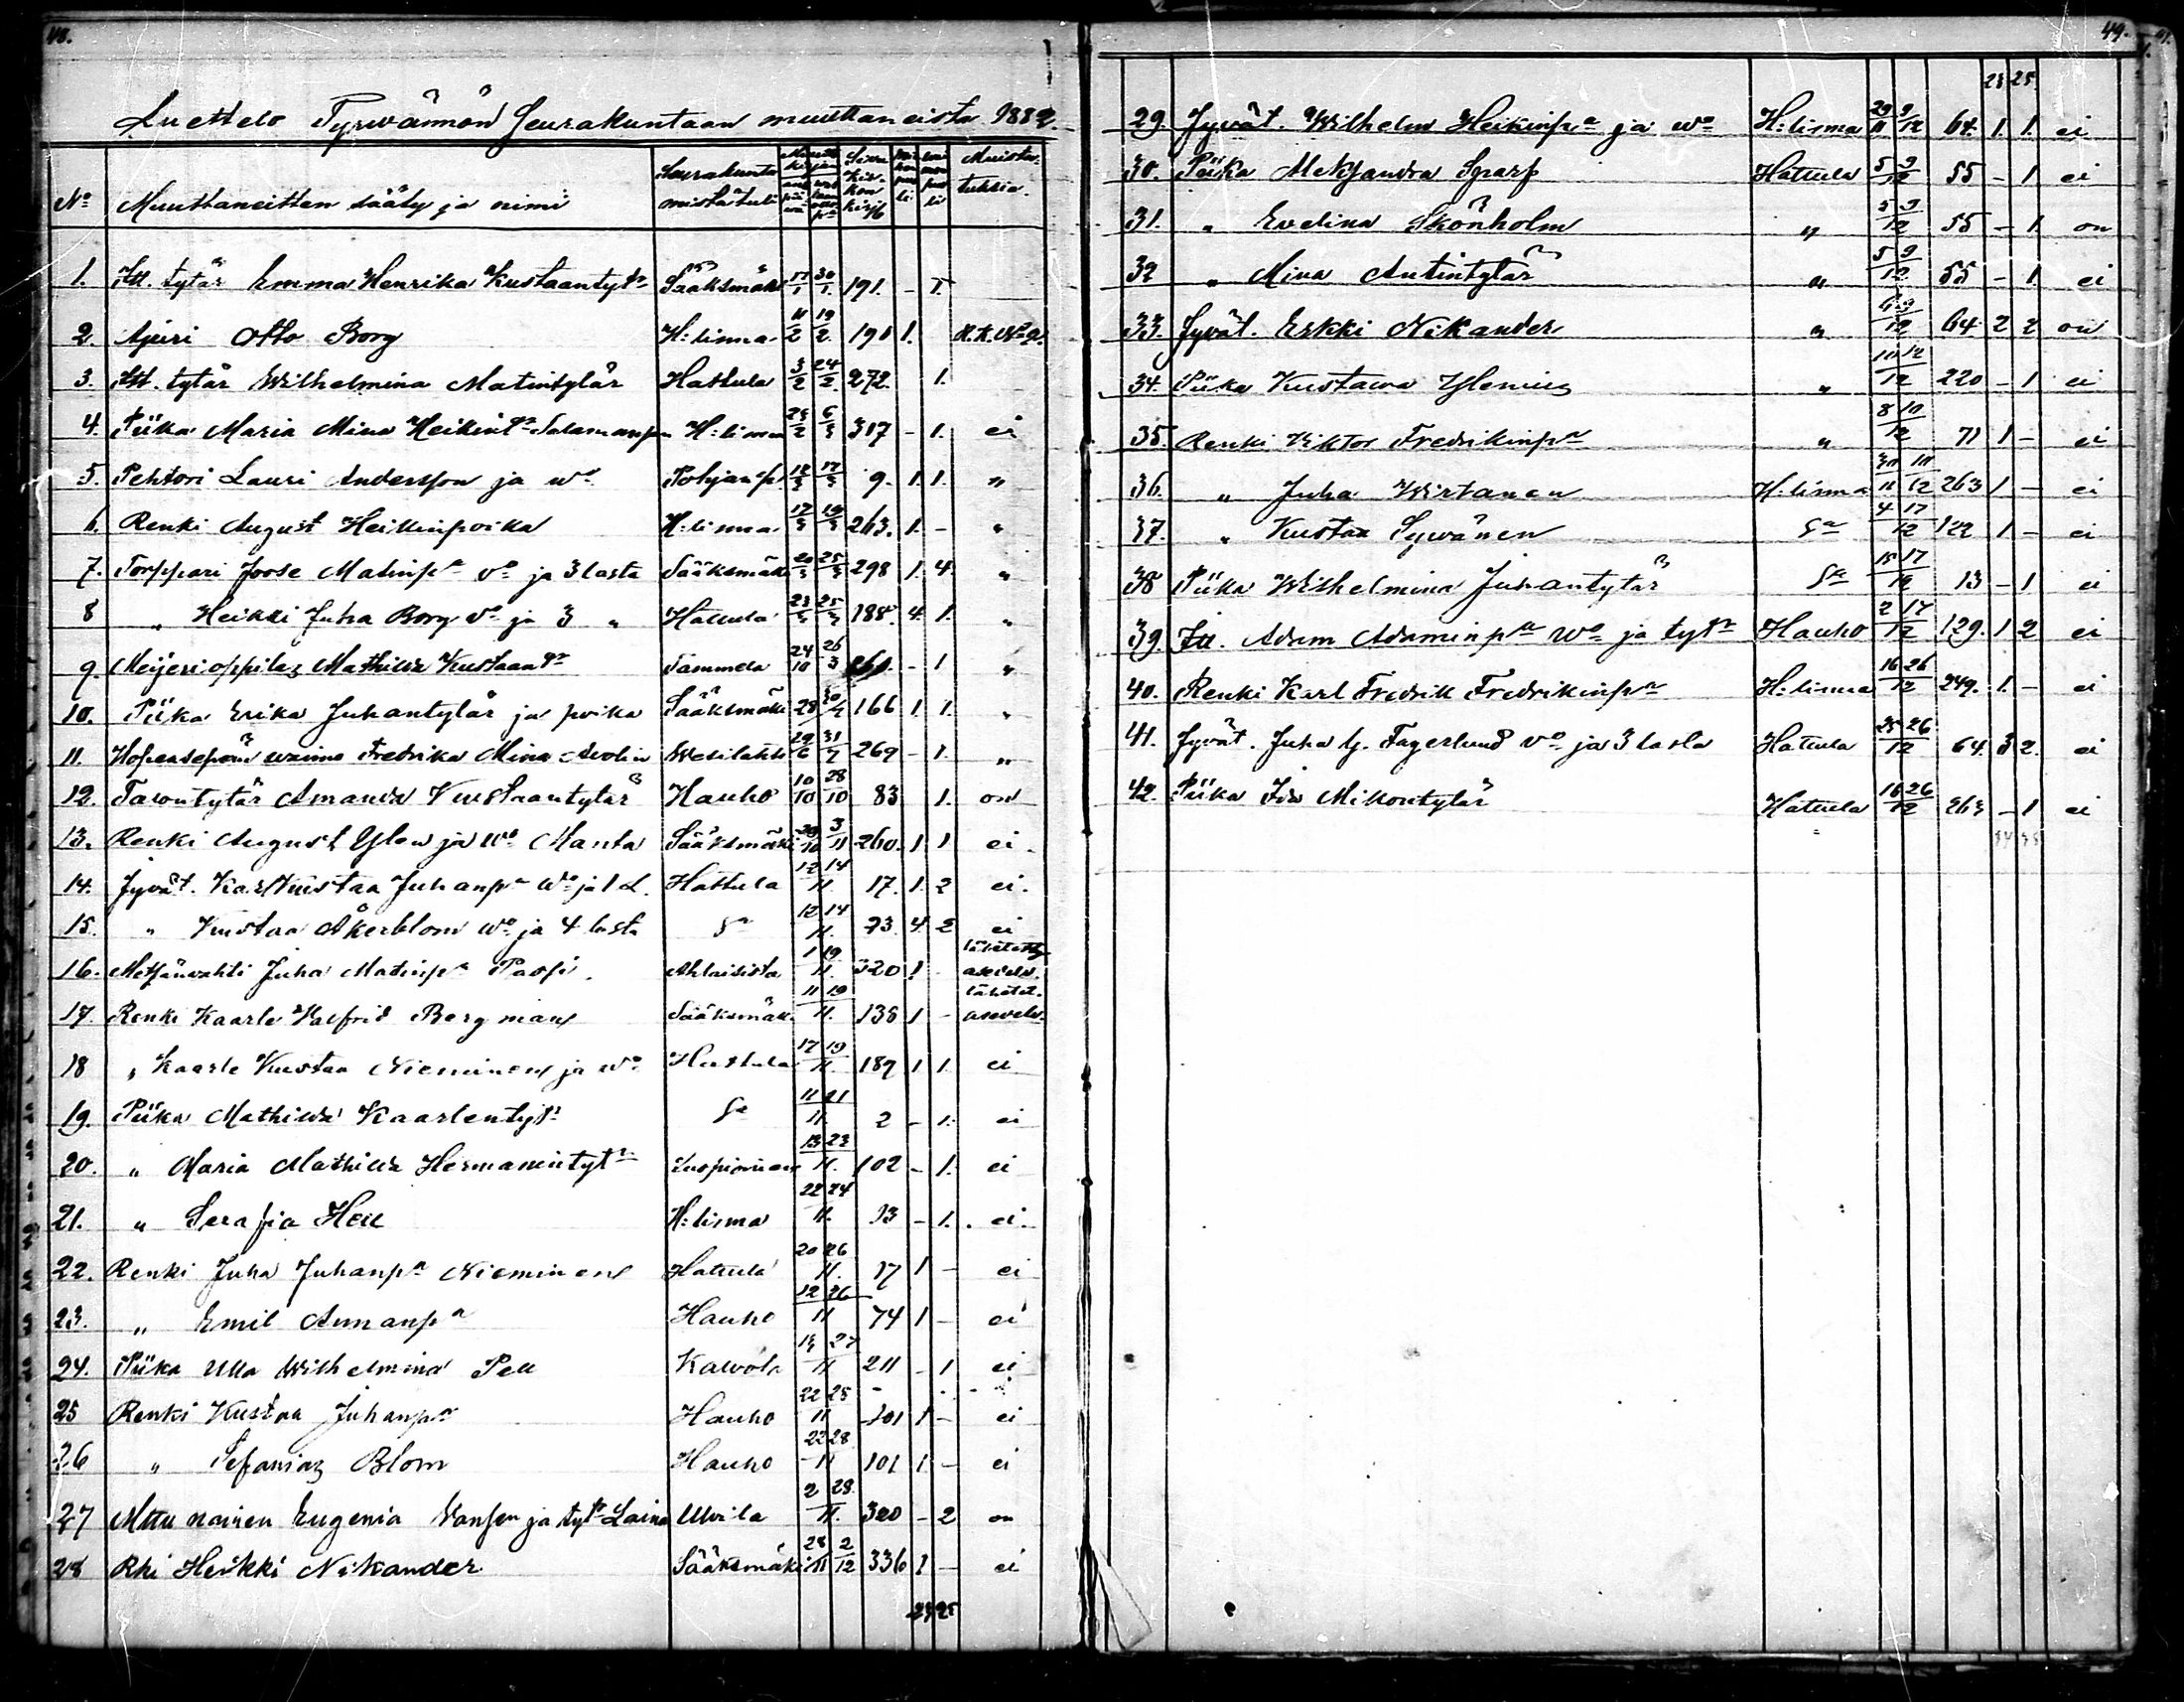 48.
Luettelo Tyrwännön Seurakuntaan muuttaneista 1882.
No Muuttaneitten sääty ja nimi Seurakunta mistä tuli Muistutuksia.
1. Itt. tytär Emma Henrika Kustaantytr Sääksmäki 17/1 30/1. 191. - 1.
2. Ajuri Otto Borg H:linna 11/2 19/2 191 1.
3. Itt. tytär Wilhelmina Matintytär Hattula 3/2 24/2 272. 1.
4. Piika Maria Mina Heikint. H:linna 317 - 1. ei
5. Pehtori Lauri Andersson ja wo Pohjanp. 9. 1. 1. "
6. Renki August Heikinpoika H:linna 17/3 19/3 263. 1. - "
7. Torppari Joose Matinpa vo ja 3 lasta Sääksmäki 20/3 25/3 298 1. 4. "
8 " Heikki Juha Borg vo ja 3 " Hattula 23/3 25/3 188. 4. 1. "
9. Meijerioppilas Mathilda Kustaantr Tammela 24/10 26/3 - 1 "
10. Piika Erika Juhantytär ja poika Sääksmäki 166 1. 1. "
11. Hopeasepän waimo Fredrika Mina Wesilahti 29/6 31/7 269 - 1. "
12. Talontytär Amanda Kustaantytär Hauho 10/10 28/10 83 1. on
13. Renki August Ylen ja Wo Manta Sääksmäki 3/11 260. 1 1 ei.
14. Jyvät. Karl Kustaa Juhanpa Wo ja 1 L. Hattula 12 14/11. 17. 1. 2 ei.
15. " Kustaa Åkerblom Wo ja 4 lasta So 12 14/11. 73. 4. 2 ei
16. Metsänvahti Juha Matinpa Ahlaisista 1 19/11. 320 1. - lähetetty
17. Renki Kaarle Walfrid Bergman Sääksmäki 11 19/11. 138 1 - lähetet.
18 " Kaarle Kustaa Nieminen ja wo Hattula 17 19/11. 189 1 1. ei
19. Piika Mathilda Kaarlentytr So 11 21/11. 2 - 1. ei
20. " Maria Mathilda Hermanintytr 13 23/11. 102 - 1. ei
21. " Serafia Hell H:linna 22 24/11. 13 - 1. ei.
22. Renki Juha Juhanpa Nieminen Hattula 20 26/11. 17 1 - ei
23. " Emil Annanpa Hauho 12 26/11 74 1 - ei
24. Piika Ulla Wilhelmina Pell Kalvola 27/11 211 - 1 ei
25 Renki Kustaa Juhanpa Hauho 22 28/11 101 1 - ei
26 " Sefanias Blom Hauho 22 28/11 101 1. - ei
27 Mttu nainen Eugenia Hansen ja tytr Laina Ulvila 2 28/11. 320 - 2 on
28 Rki Heikki Nikander Sääksmäki 28/11 2/12 336 1 - ei
23 25
49.
23 25
29. Jyvät. Wilhelm Heikinpa ja wo H:linna 29/11 9/12 64. 1. 1. ei
30. Piika Aleksandra Sparf Hattula 5 9/12 55 - 1 ei
31. " Evelina Skönholm " 5 9/12 55 - 1. on
32 " Mina Antintytär " 5 9/12 55 - 1. ei
33. Jyvät. Erkki Nikander " 6 9/12 64 2 2 on
34. Piika Kustawa Ylenius " 10 12/12 220 - 1 ei
35. Renki Viktor Fredrikinpa " 8 10/12 71 1 - ei
36. " Juha Wirtanen H:linna 30/11 10/12 263 1 - ei
37. " Kustaa Sywänen So 4 17/12 122 1 - ei
38 Piika Wilhelmina Juhantytär So 15 17/12 13 - 1 ei
39. Itt. Adam Adaminpa Wo ja tytr Hauho 2 17/12 129. 1 2 ei
40. Renki Karl Fredrik Fredrikinpa H:linna 16 26/12 249. 1. - ei
41. Jyvät. Juha G. Fagerlund vo ja 3 lasta Hattula 25 26/12 64. 3 2. ei
42. Piika Ida Mikontytär Hattula 16 26/12 263 - 1 ei